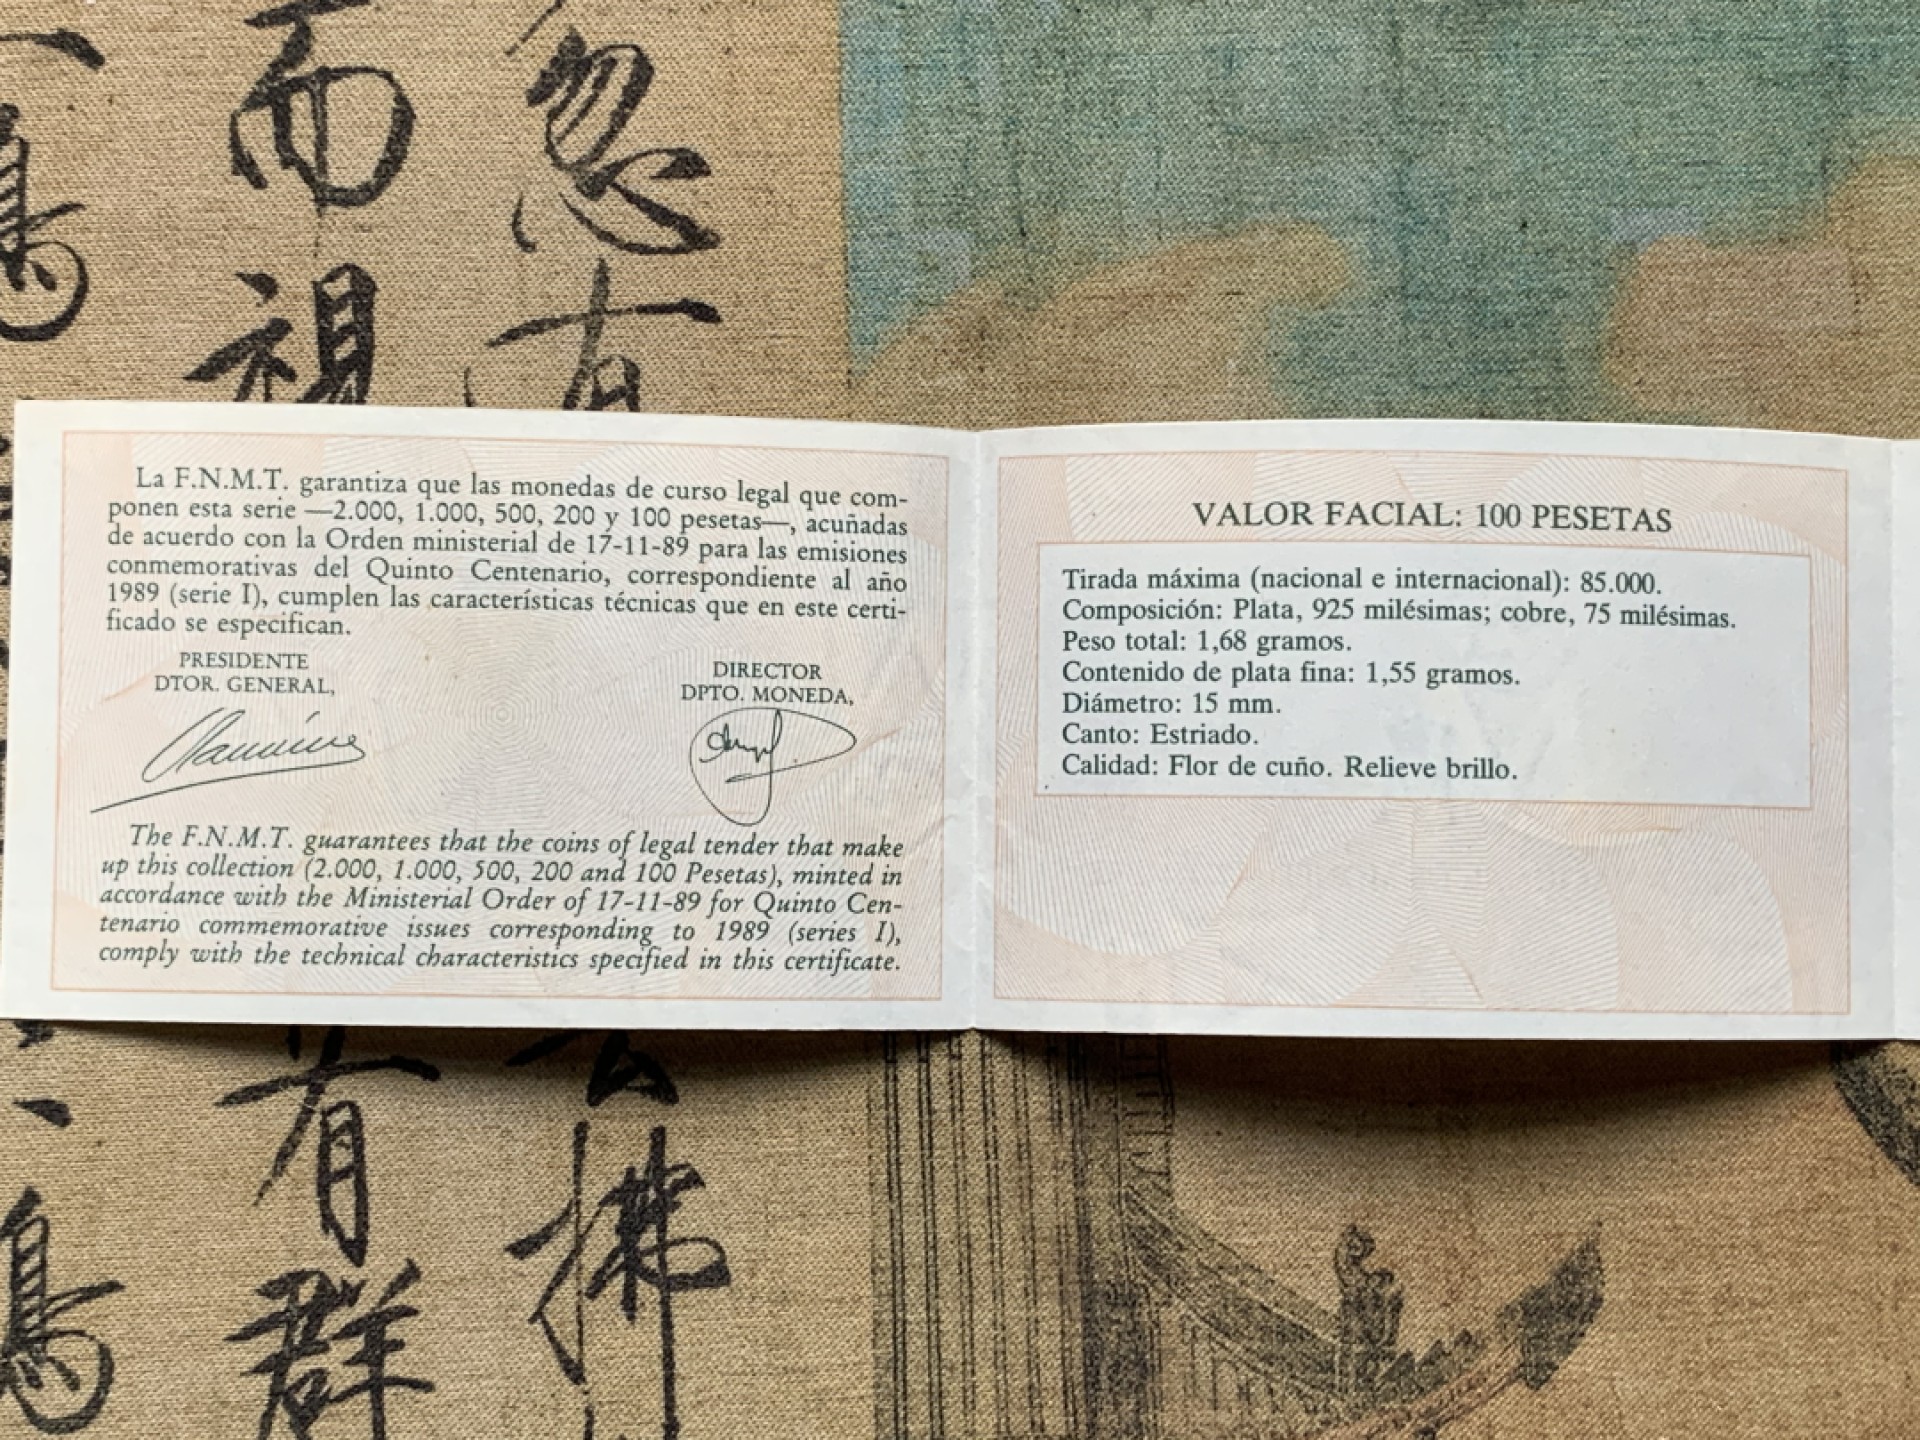 La F.N.M.T. garantiza que las monedas de curso legal que com-
ponen esta serie —2.000, 1.000, 500, 200 y 100 pesetas—, acuñadas
de acuerdo con la Orden ministerial de 17-11-89 para las emisiones
conmemorativas del Quinto Centenario, correspondiente al año
1989 (serie I), cumplen las características técnicas que en este certi-
ficado se especifican.
PRESIDENTE
DTOR. GENERAL,
DIRECTOR
DPTO. MONEDA,
The F.N.M.T. guarantees that the coins of legal tender that make
up this collection (2.000, 1.000, 500, 200 and 100 Pesetas), minted in
accordance with the Ministerial Order of 17-11-89 for Quinto Cen-
tenario commemorative issues corresponding to 1989 (series I),
comply with the technical characteristics specified in this certificate.
VALOR FACIAL: 100 PESETAS
Tirada máxima (nacional e internacional): 85.000.
Composición: Plata, 925 milésimas; cobre, 75 milésimas.
Peso total: 1,68 gramos.
Contenido de plata fina: 1,55 gramos.
Diámetro: 15 mm.
Canto: Estriado.
Calidad: Flor de cuño. Relieve brillo.
忽有
拂
而視
有群